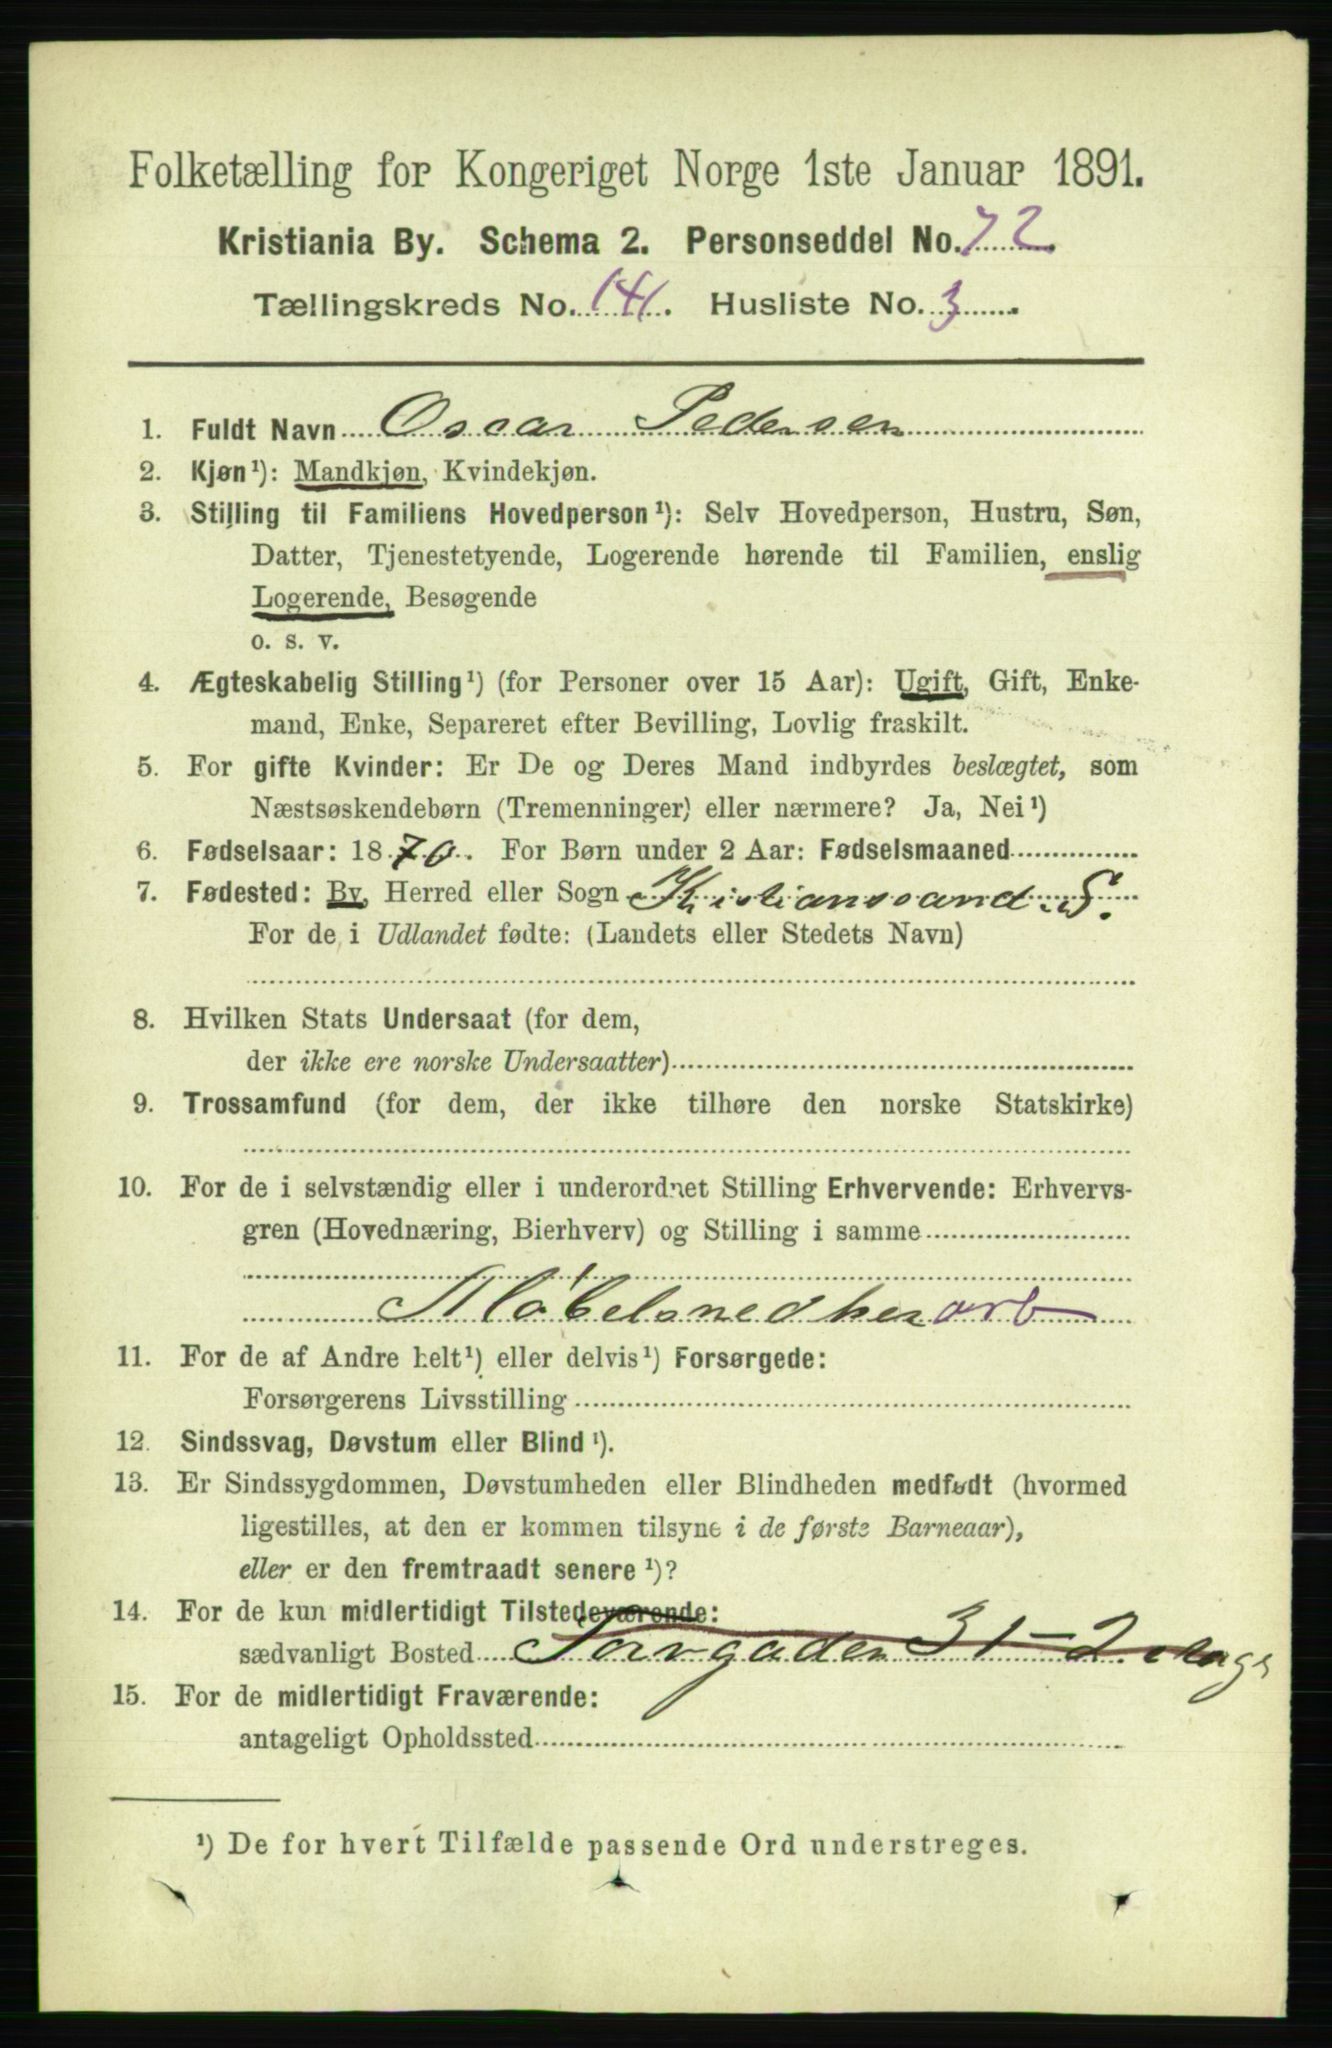 Folketælling for Kongeriget Norge 1ste Januar 1891.
Kristiania By. Schema 2. Personseddel No. 72
Tællingskreds No. 141. Husliste No. 3
1. Fuldt Navn Oscar Pedersen
2. Kjøn¹): Mandkjøn, Kvindekjøn.
3. Stilling til Familiens Hovedperson¹): Selv Hovedperson, Hustru, Søn,
Datter, Tjenestetyende, Logerende hørende til Familien, enslig
Logerende, Besøgende
o. s. v.
4. Ægteskabelig Stilling¹) (for Personer over 15 Aar): Ugift, Gift, Enke-
mand, Enke, Separeret efter Bevilling, Lovlig fraskilt.
5. For gifte Kvinder: Er De og Deres Mand indbyrdes beslægtet, som
Næstsøskendebørn (Tremenninger) eller nærmere? Ja, Nei¹)
6. Fødselsaar: 1870. For Børn under 2 Aar: Fødselsmaaned
7. Fødested: By, Herred eller Sogn Kristianssand S.
For de i Udlandet fødte: (Landets eller Stedets Navn)
8. Hvilken Stats Undersaat (for dem,
der ikke ere norske Undersaatter)
9. Trossamfund (for dem, der ikke tilhøre den norske Statskirke)
10. For de i selvstændig eller i underordnet Stilling Erhvervende: Erhvervs-
gren (Hovednæring, Bierhverv) og Stilling i samme
Møbelsnedkerarb
11. For de af Andre helt¹) eller delvis¹) Forsørgede:
Forsørgerens Livsstilling
12. Sindssvag, Døvstum eller Blind¹).
13. Er Sindssygdommen, Døvstumheden eller Blindheden medfødt (hvormed
ligestilles, at den er kommen tilsyne i de første Barneaar),
eller er den fremtraadt senere¹)?
14. For de kun midlertidigt Tilstedeværende:
sædvanligt Bosted Torvgaden 31 - 2
15. For de midlertidigt Fraværende:
antageligt Opholdssted
¹) De for hvert Tilfælde passende Ord understreges.